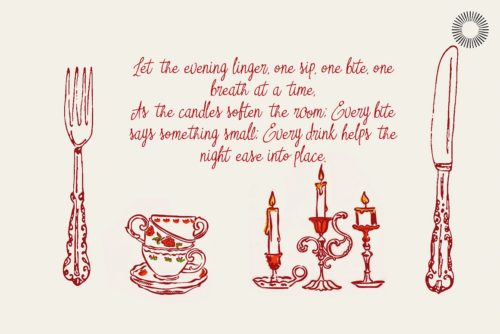 Let the evening linger, one sip, one bite, one
breath at a time.
As the candles soften the room; Every bite
says something small; Every drink helps the
night ease into place.